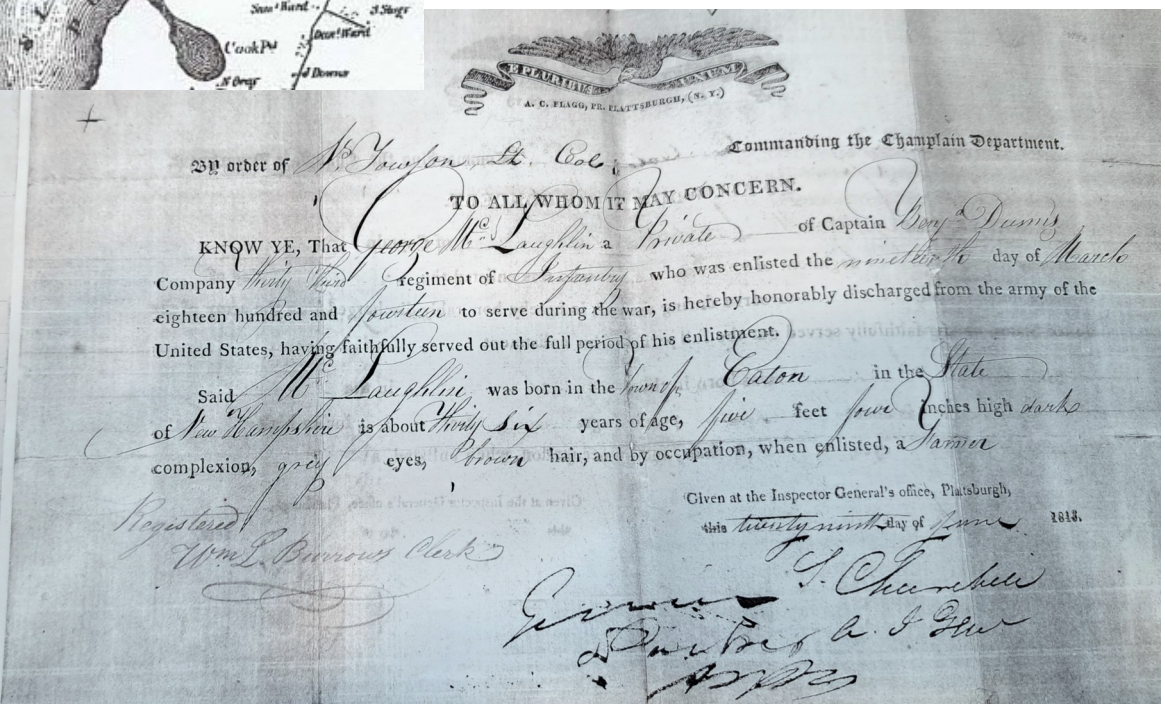 Saml. Ward.
J. Stagr
Danl. Ward
Cook Pd.
N. Gray
J. Downs
E PLURIBUS UNUM
A. C. FLAGG, PR. PLATTSBURGH, (N. Y.)
By order of N. Towson Lt. Col. Commanding the Champlain Department.
TO ALL WHOM IT MAY CONCERN.
KNOW YE, That George McLaughlin a Private of Captain Benja
Company thirty third regiment of Infantry who was enlisted the nineteenth day of March
eighteen hundred and fourteen to serve during the war, is hereby honorably discharged from the army of the
United States, having faithfully served out the full period of his enlistment.
Said McLaughlin was born in the Town of Eaton in the State
of New Hampshire is about thirty six years of age, five feet four inches high dark
complexion, grey eyes, brown hair, and by occupation, when enlisted, a Farmer
Given at the Inspector General's office, Plattsburgh,
this twenty ninth day of June 1815.
Registered
Wm L. Burrows Clerk
S. Churchill